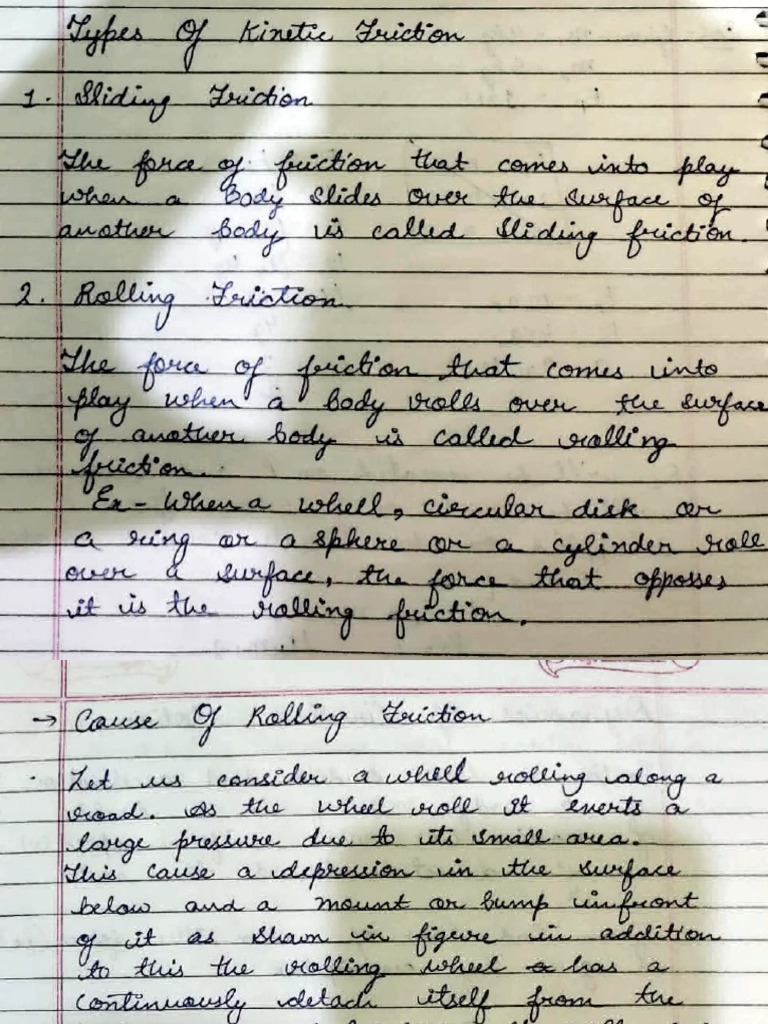 Types Of Kinetic Friction
1. Sliding Friction
The force of friction that comes into play
when a Body slides over the surface of
another body is called sliding friction.
2. Rolling Friction
The force of friction that comes into
play when a body rolls over the surface
of another body is called rolling
friction.
Ex - When a whell, circular disk or
a ring or a sphere or a cylinder roll
over a surface, the force that opposses
it is the rolling friction.
→ Cause Of Rolling Friction
. Let us consider a whell rolling along a
road. As the wheel roll it exerts a
large pressure due to its small area.
This cause a depression in the surface
below and a mount or bump infront
of it as shown in figure in addition
to this the rolling wheel has a
continuously detach itself from the